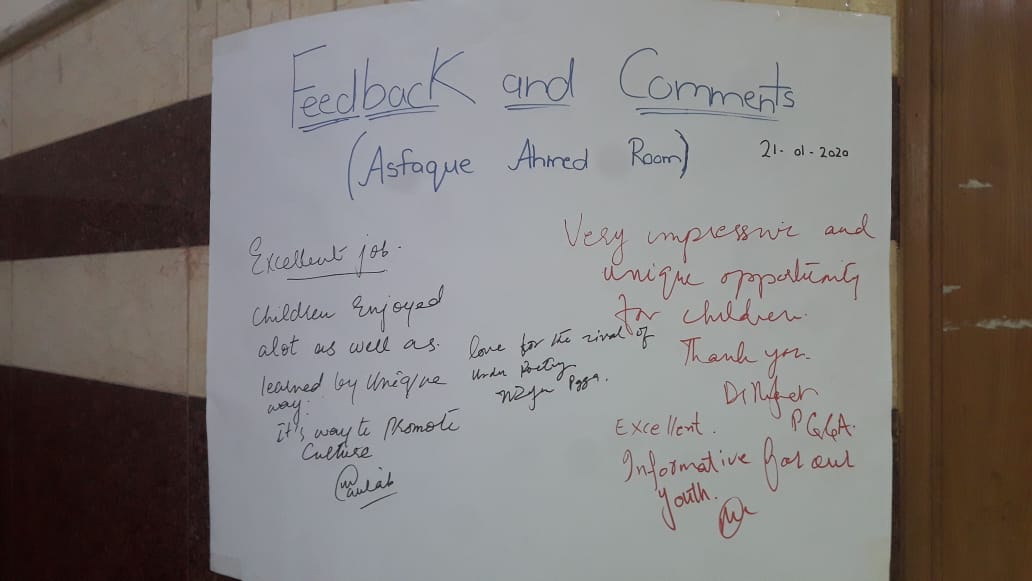 Feedback and Comments
(Asfaque Ahmed Room)
21-01-2020
Excellent job.
Children Enjoyed
alot as well as.
learned by Unique
way.
it's way to Promote
Culture
love for the rival of
Urdu Poetry
Very impressive and
unique opportunity
for children.
Thank you.
PGGA.
Excellent.
Informative for our
youth.